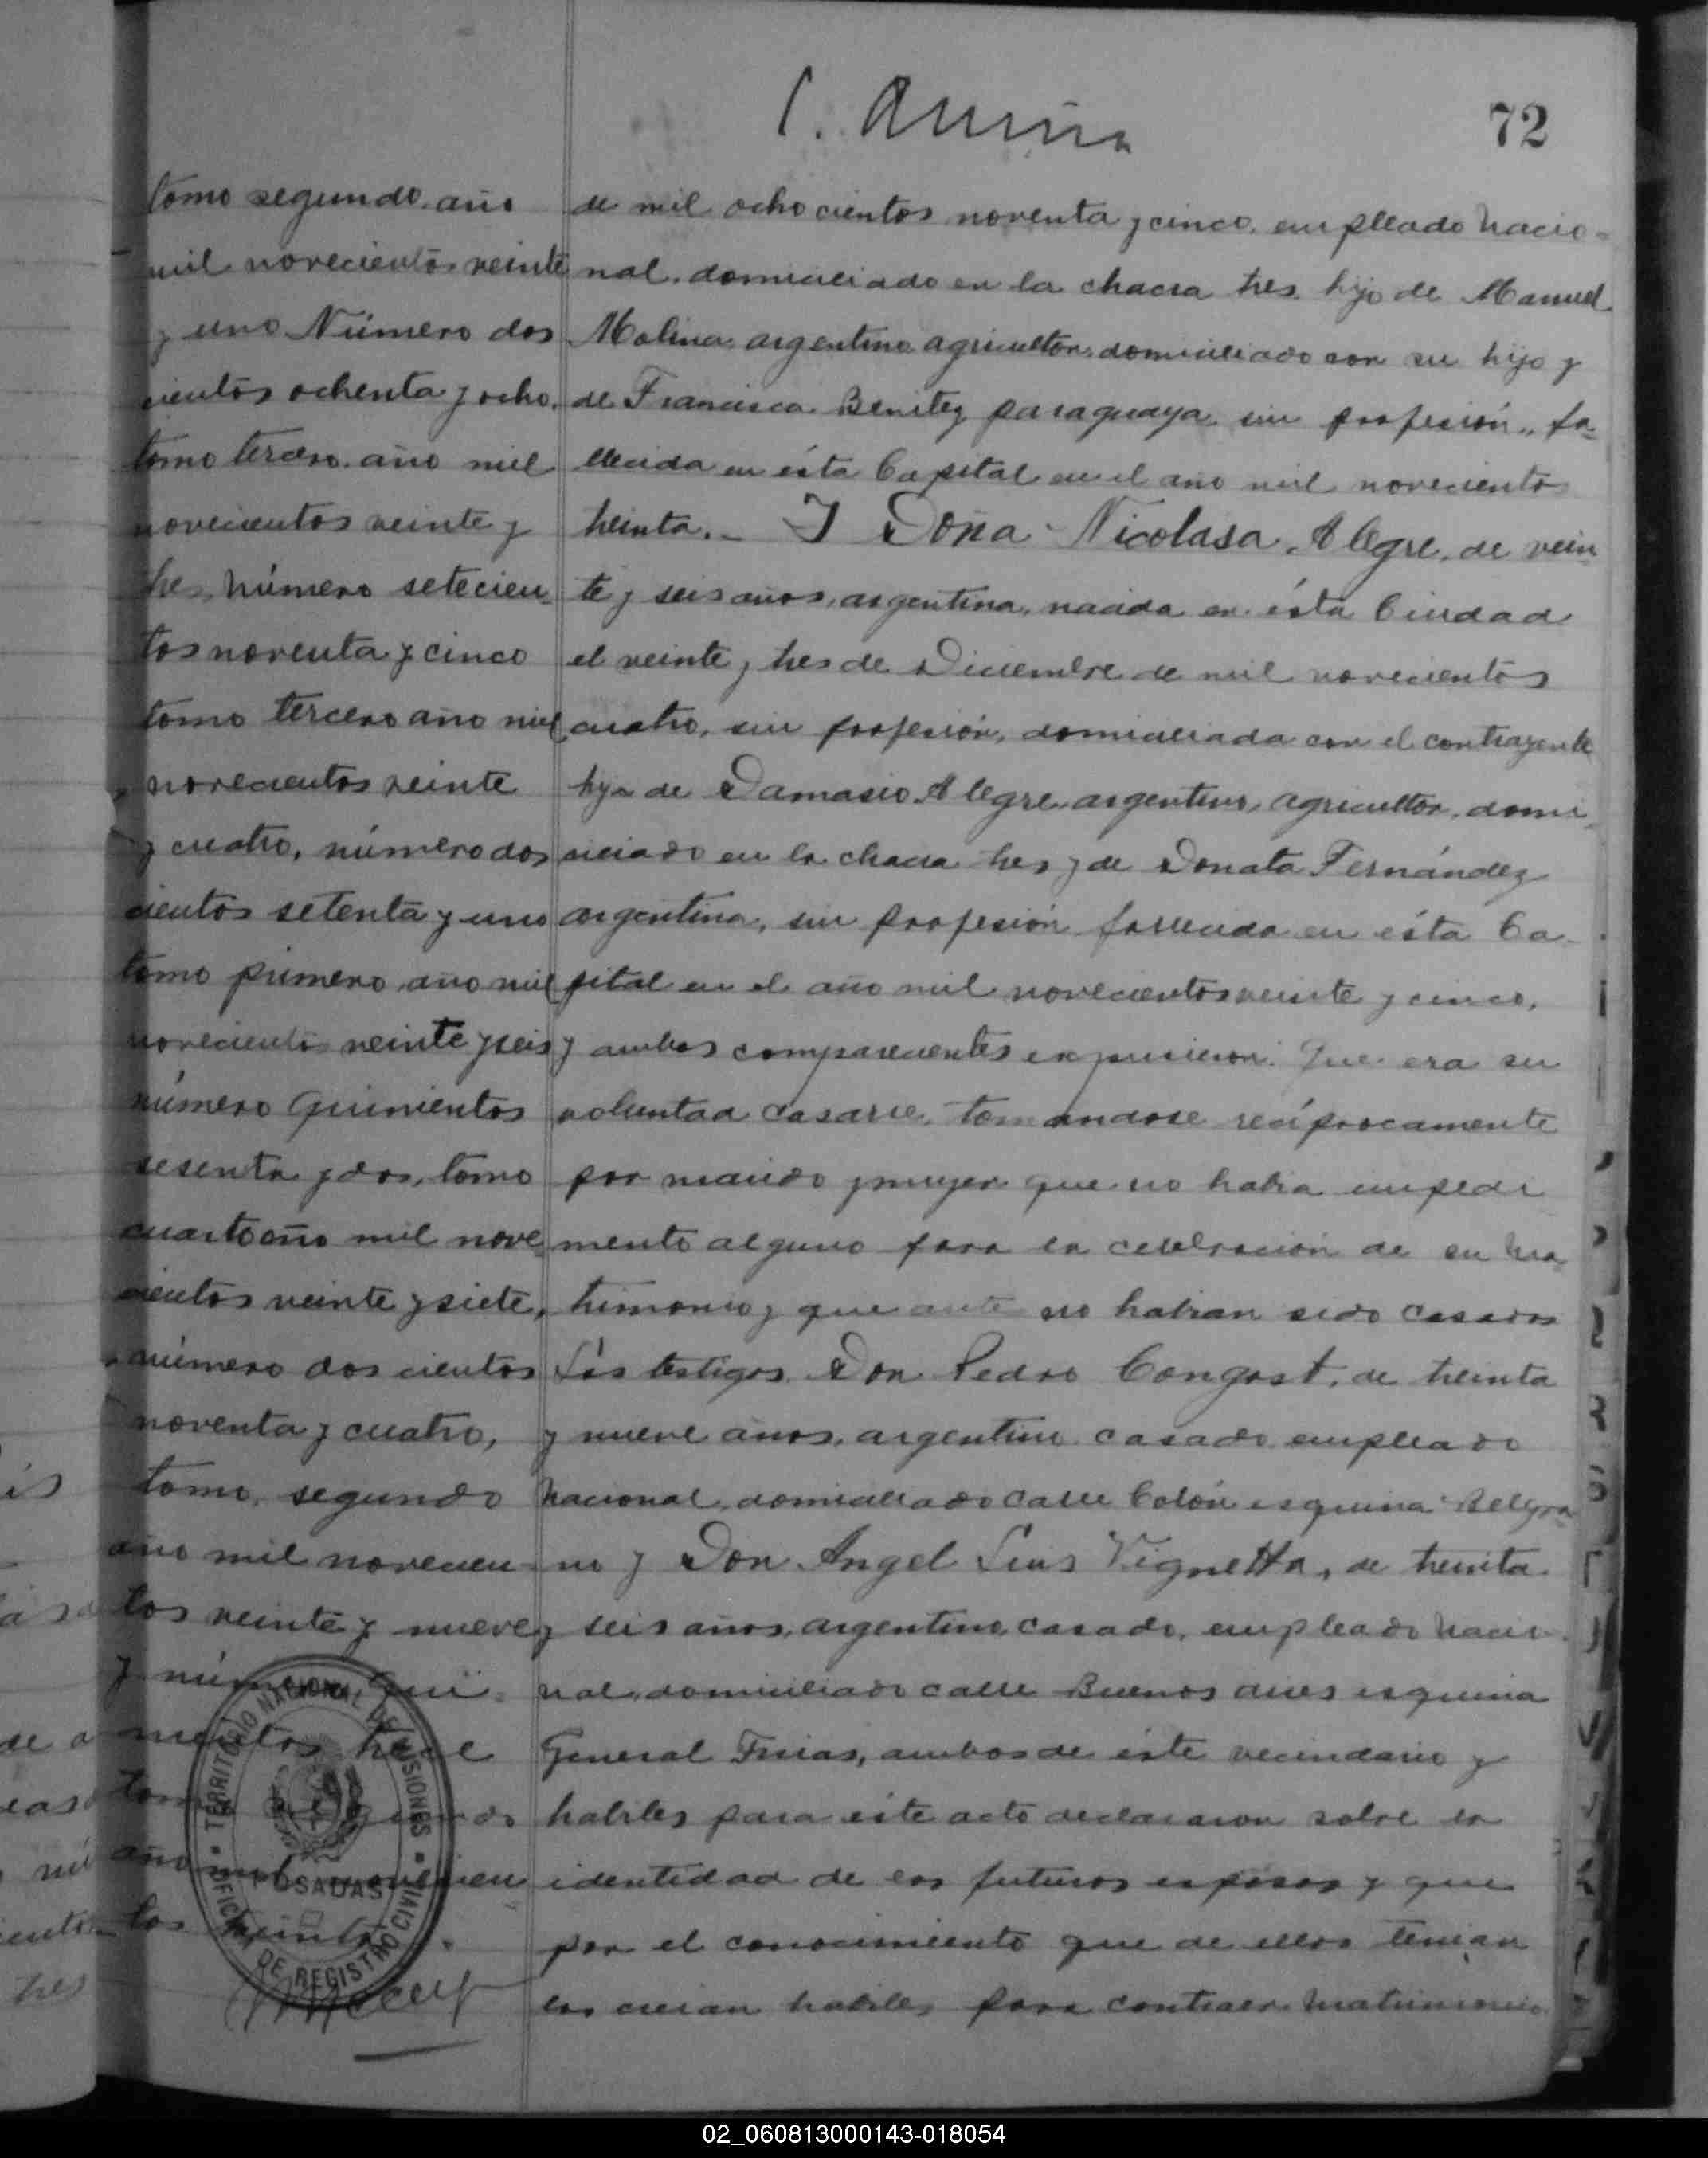 72
tomo segundo año
mil novecientos veinte
y uno Número dos
cientos ochenta y ocho,
tomo tercero año mil
novecientos veinte y
tres, número setecien
tos noventa y cinco
tomo tercero año mil
novecientos veinte
y cuatro, número dos
cientos setenta y uno
tomo primero año mil
novecientos veinte y seis
número quinientos
sesenta y dos, tomo
cuarto año mil nove
cientos veinte y siete,
número dos cientos
noventa y cuatro,
tomo, segundo
año mil novecien
tos veinte y nueve
y número Qui
nientos trece
tomo segundo
año mil novecien
tos treinta.
TERRITORIO NACIONAL DE MISIONES
POSADAS
OFICINA DE REGISTRO CIVIL
de mil ochocientos noventa y cinco, empleado Nacio-
nal, domiciliado en la chacra tres, hijo de Manuel
Molina argentino agricultor, domiciliado con su hijo y
de Francisca Benitez paraguaya sin profesión, fa-
llecida en ésta Capital en el año mil novecientos
treinta.- Y Doña Nicolasa Alegre, de vein
te y seis años, argentina, nacida en ésta Ciudad
el veinte y tres de Diciembre de mil novecientos
cuatro, sin profesión, domiciliada con el contrayente
hija de Damasio Alegre, argentino, agricultor, domi
ciliado en la chacra tres y de Donata Fernández
argentina, sin profesión fallecida en ésta Ca-
pital en el año mil novecientos veinte y cinco,
y ambos comparecientes expusieron: Que era su
voluntad casarse, tomandose recíprocamente
por marido y mujer que no habia impedi
mento alguno para la celebración de su Ma
trimonio y que ante no habian sido casados
Los testigos Don Pedro Congost, de treinta
y nueve años, argentino casado empleado
Nacional, domiciliado calle Colón esquina Belgra
no y Don Angel Luis Vignetta, de treinta
y seis años, argentino, casado, empleado Nacio-
nal, domiciliado calle Buenos aires esquina
General Frias, ambos de éste vecindario y
habiles para este acto declararon sobre la
identidad de los futuros esposos y que
por el conocimiento que de ellos tenian
los creian habiles para contraer Matrimonio
02_060813000143-018054